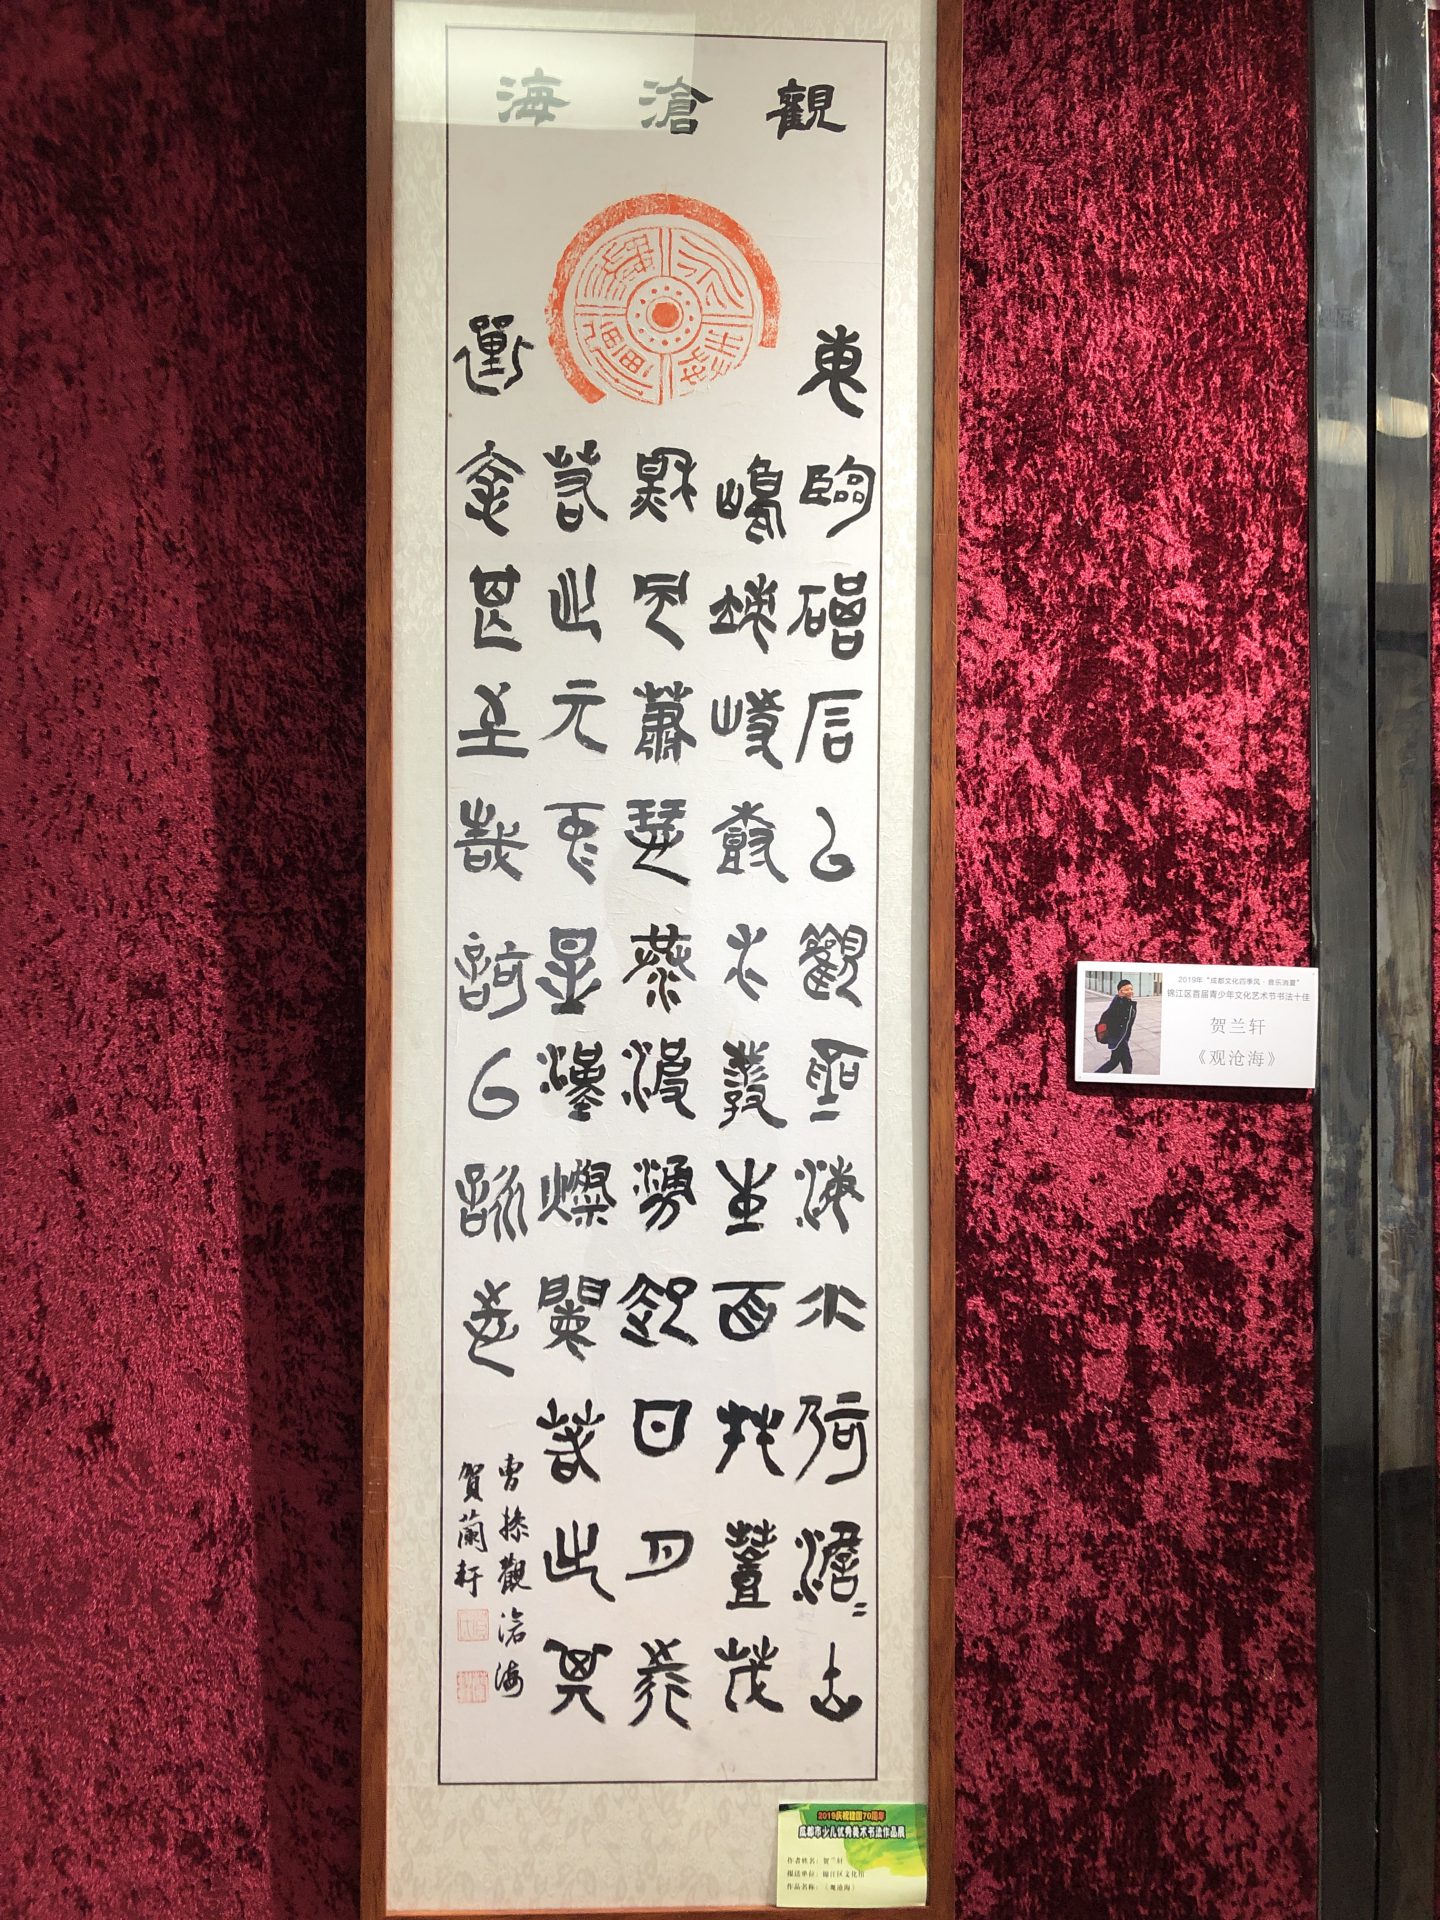 觀滄海
東臨碣石以觀滄海水何澹〻山
島竦峙樹木叢生百草豐茂
秋風蕭瑟洪波湧起日月之行
若出其中星漢燦爛若出其
裏幸甚至哉歌以詠志
曹操觀滄海
賀蘭軒
2019年“成都文化四季风·音乐消夏”
锦江区首届青少年文化艺术节书法十佳
贺兰轩
《观沧海》
2019庆祝建国70周年
成都市少儿优秀美术书法作品展
作者姓名：贺兰轩
报送单位：锦江区文化馆
作品名称：《观沧海》